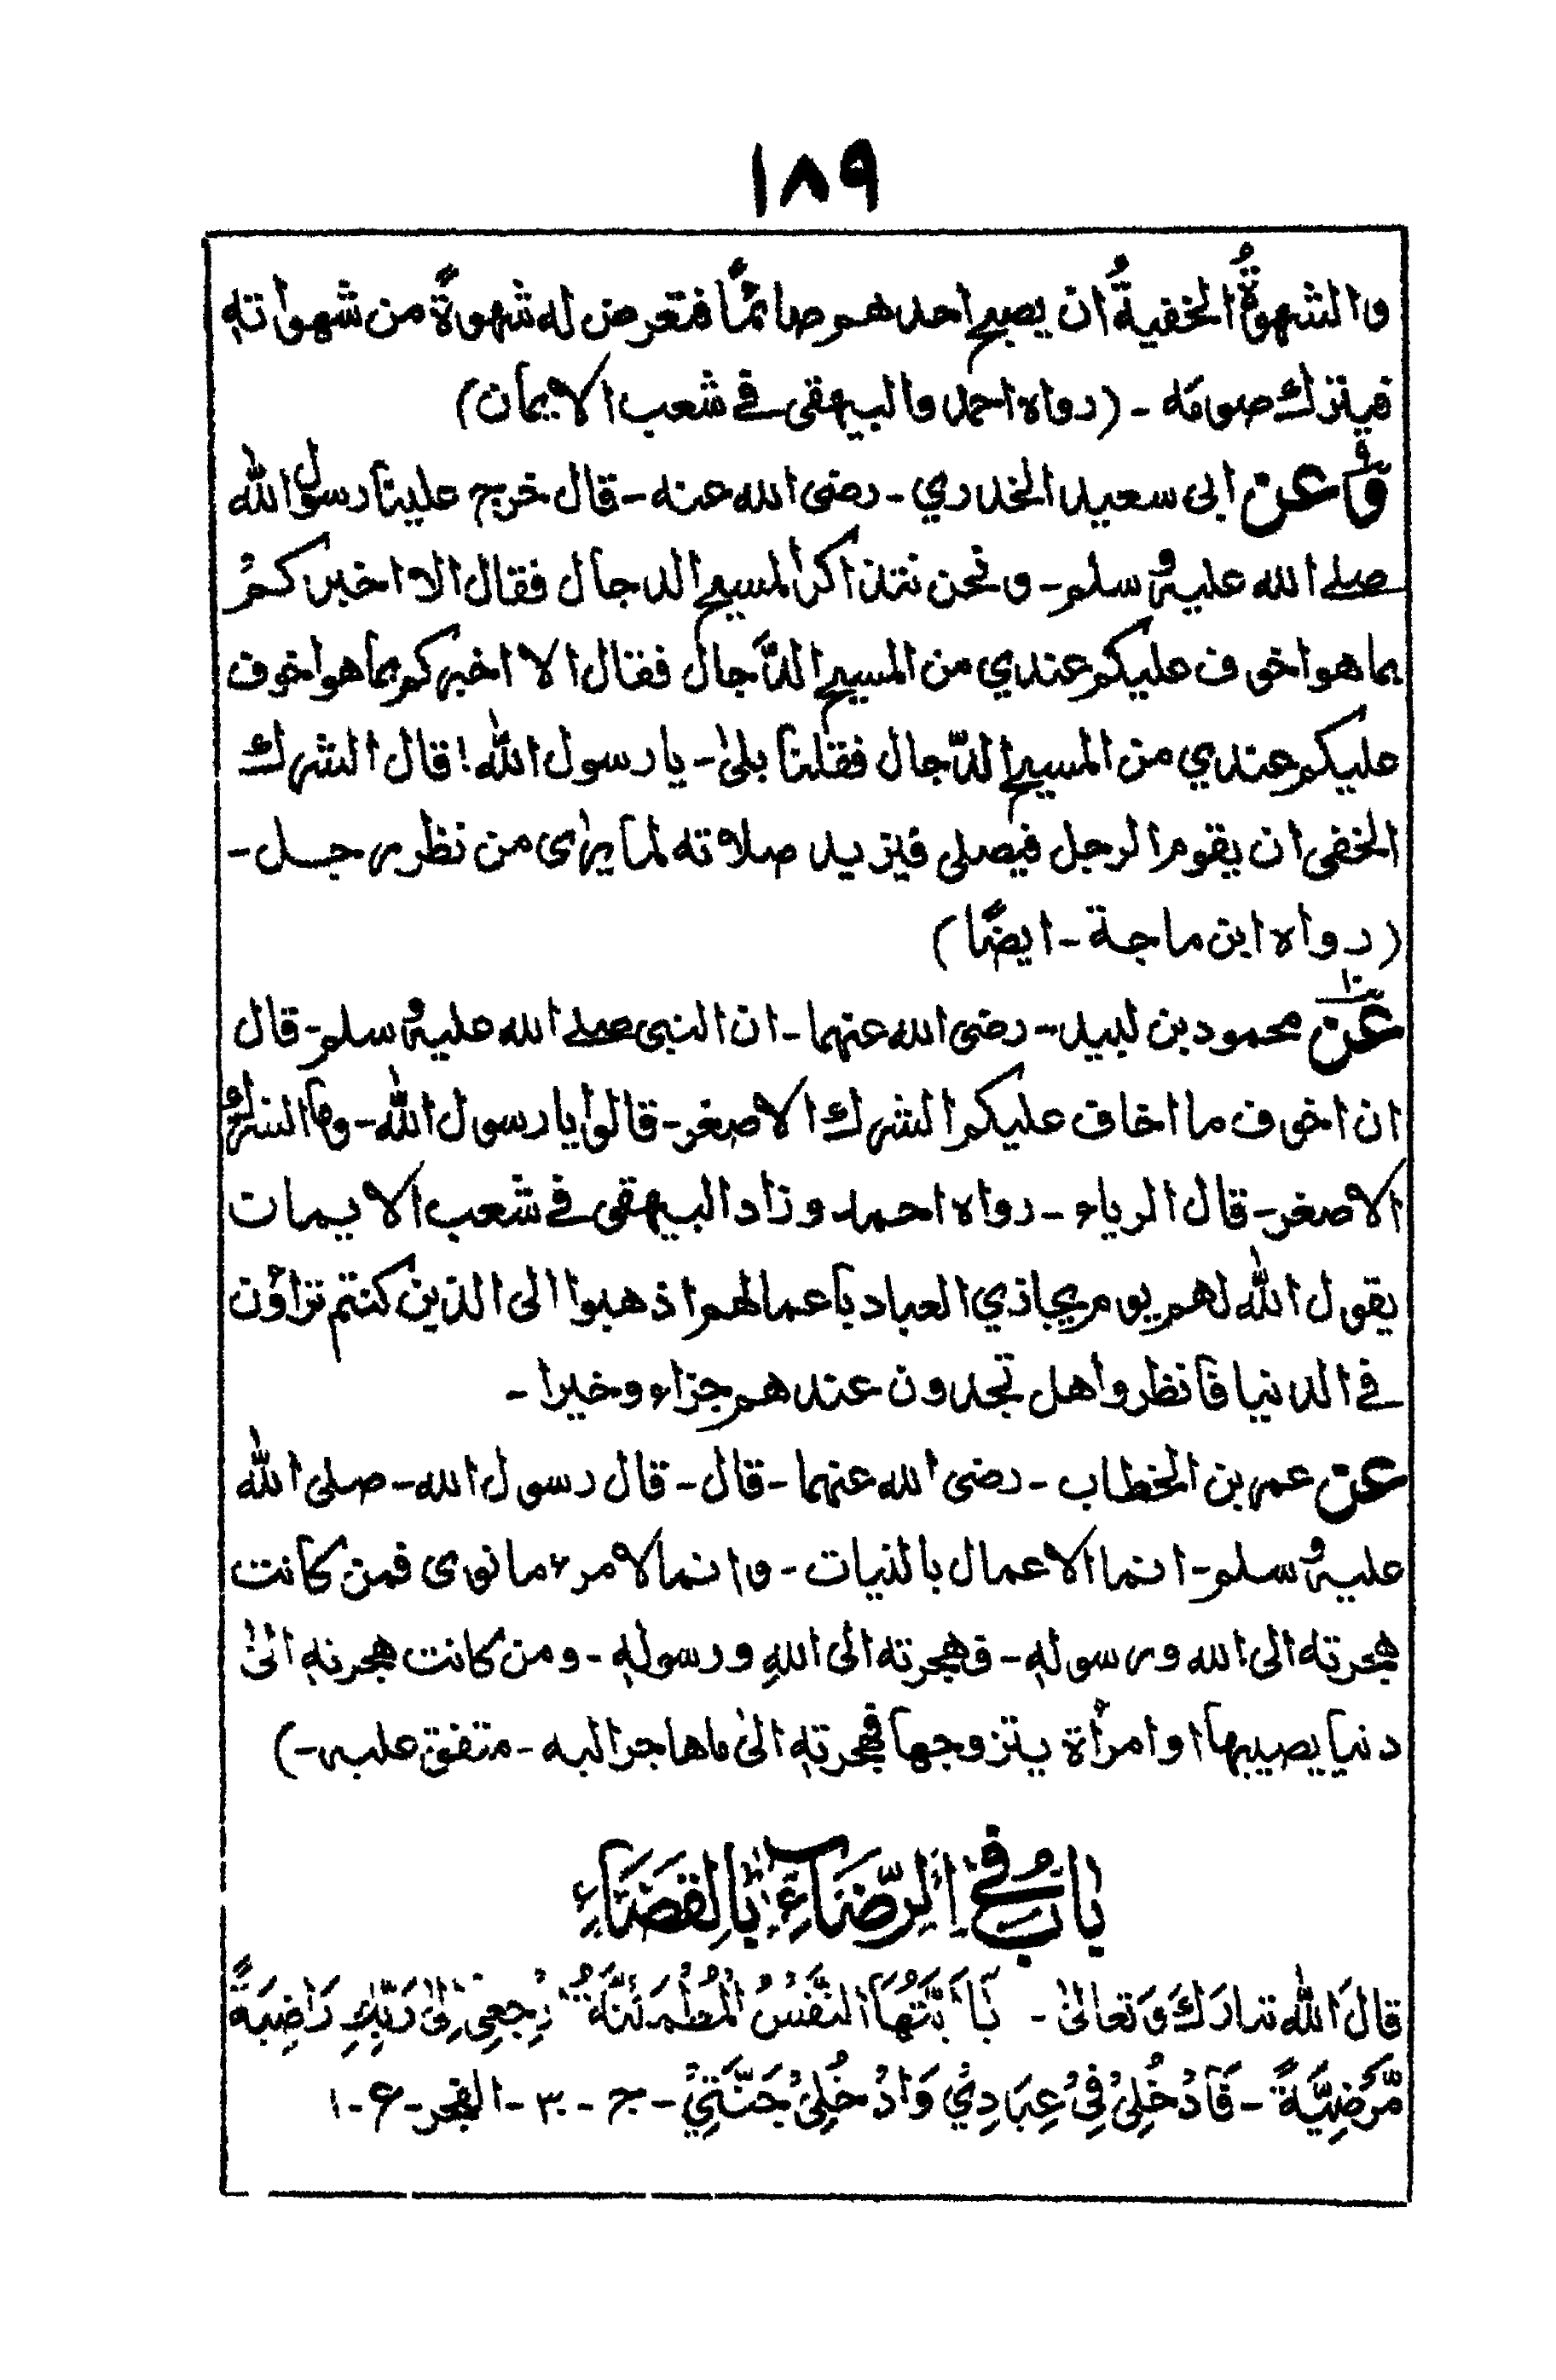 ١٨٩
والشهوةُ الخفيةُ ان يصبح احدهم صائمًا فتعرض له شهوةً من شهواته
فيترك صومَه ـ (رواه احمد والبيهقى فى شعب الايمان)
وَعن ابى سعيد الخدري ـ رضى الله عنه ـ قال خرج علينا رسول الله
صلے الله عليه وسلم ـ ونحن نتذاكر المسيح الدجال فقال الا اخبركمْ
بما هو اخوف عليكم عندي من المسيح الدَّجال فقال الا اخبركم بما هو اخوف
عليكم عندي من المسيح الدّجال فقلنا بلىٰ ـ يا رسول الله! قال الشرك
الخفى ان يقوم الرجل فيصلى فيزيد صلاته لما يرٰى من نظر رجل ـ
(رواه ابن ماجة ـ ايضًا)
١٠
عَن محمود بن لبيد ـ رضى الله عنهما ـ ان النبى صلے الله عليه وسلم ـ قال
ان اخوف ما اخاف عليكم الشرك الاصغر ـ قالوا يا رسول الله ـ وما الشرك
الاصغر ـ قال الرياء ـ رواه احمد ـ وزاد البيهقى فى شعب الايمان
يقول الله لهم يوم يجاذي العباد باعمالهم اذهبوا الى الذين كنتم تراؤن
فى الدنيا فانظروا هل تجدون عندهم جزاء وخيرا ـ
عن عمر بن الخطاب ـ رضى الله عنهما ـ قال ـ قال رسول الله ـ صلى الله
عليه وسلم ـ انما الاعمال بالنيات ـ وانما لامرء ما نوى فمن كانت
هجرته الى الله ورسوله ـ فهجرته الى اللهِ ورسوله ـ ومن كانت هجرته الىٰ
دنيا يصيبها او امرأة يتزوجها فهجرته الىٰ ما هاجر اليه ـ متفق عليه ـ)
بابٌ فِى الرِّضَاءِ بِالقَضَاءِ
قالَ الله تبارَكَ وَتعالىٰ ـ يَا أَيَّتُهَا النَّفْسُ الْمُطْمَئنَّةُ ارْجِعِى اِلىٰ رَبِّكِ رَاضِيَةً
مَّرْضِيَّةً ـ فَادْخُلِىْ فِىْ عِبَادِيْ وَادْخُلِىْ جَنَّتِيْ ـ ج ـ ٣٠ ـ الفجر ـ ع ـ ١